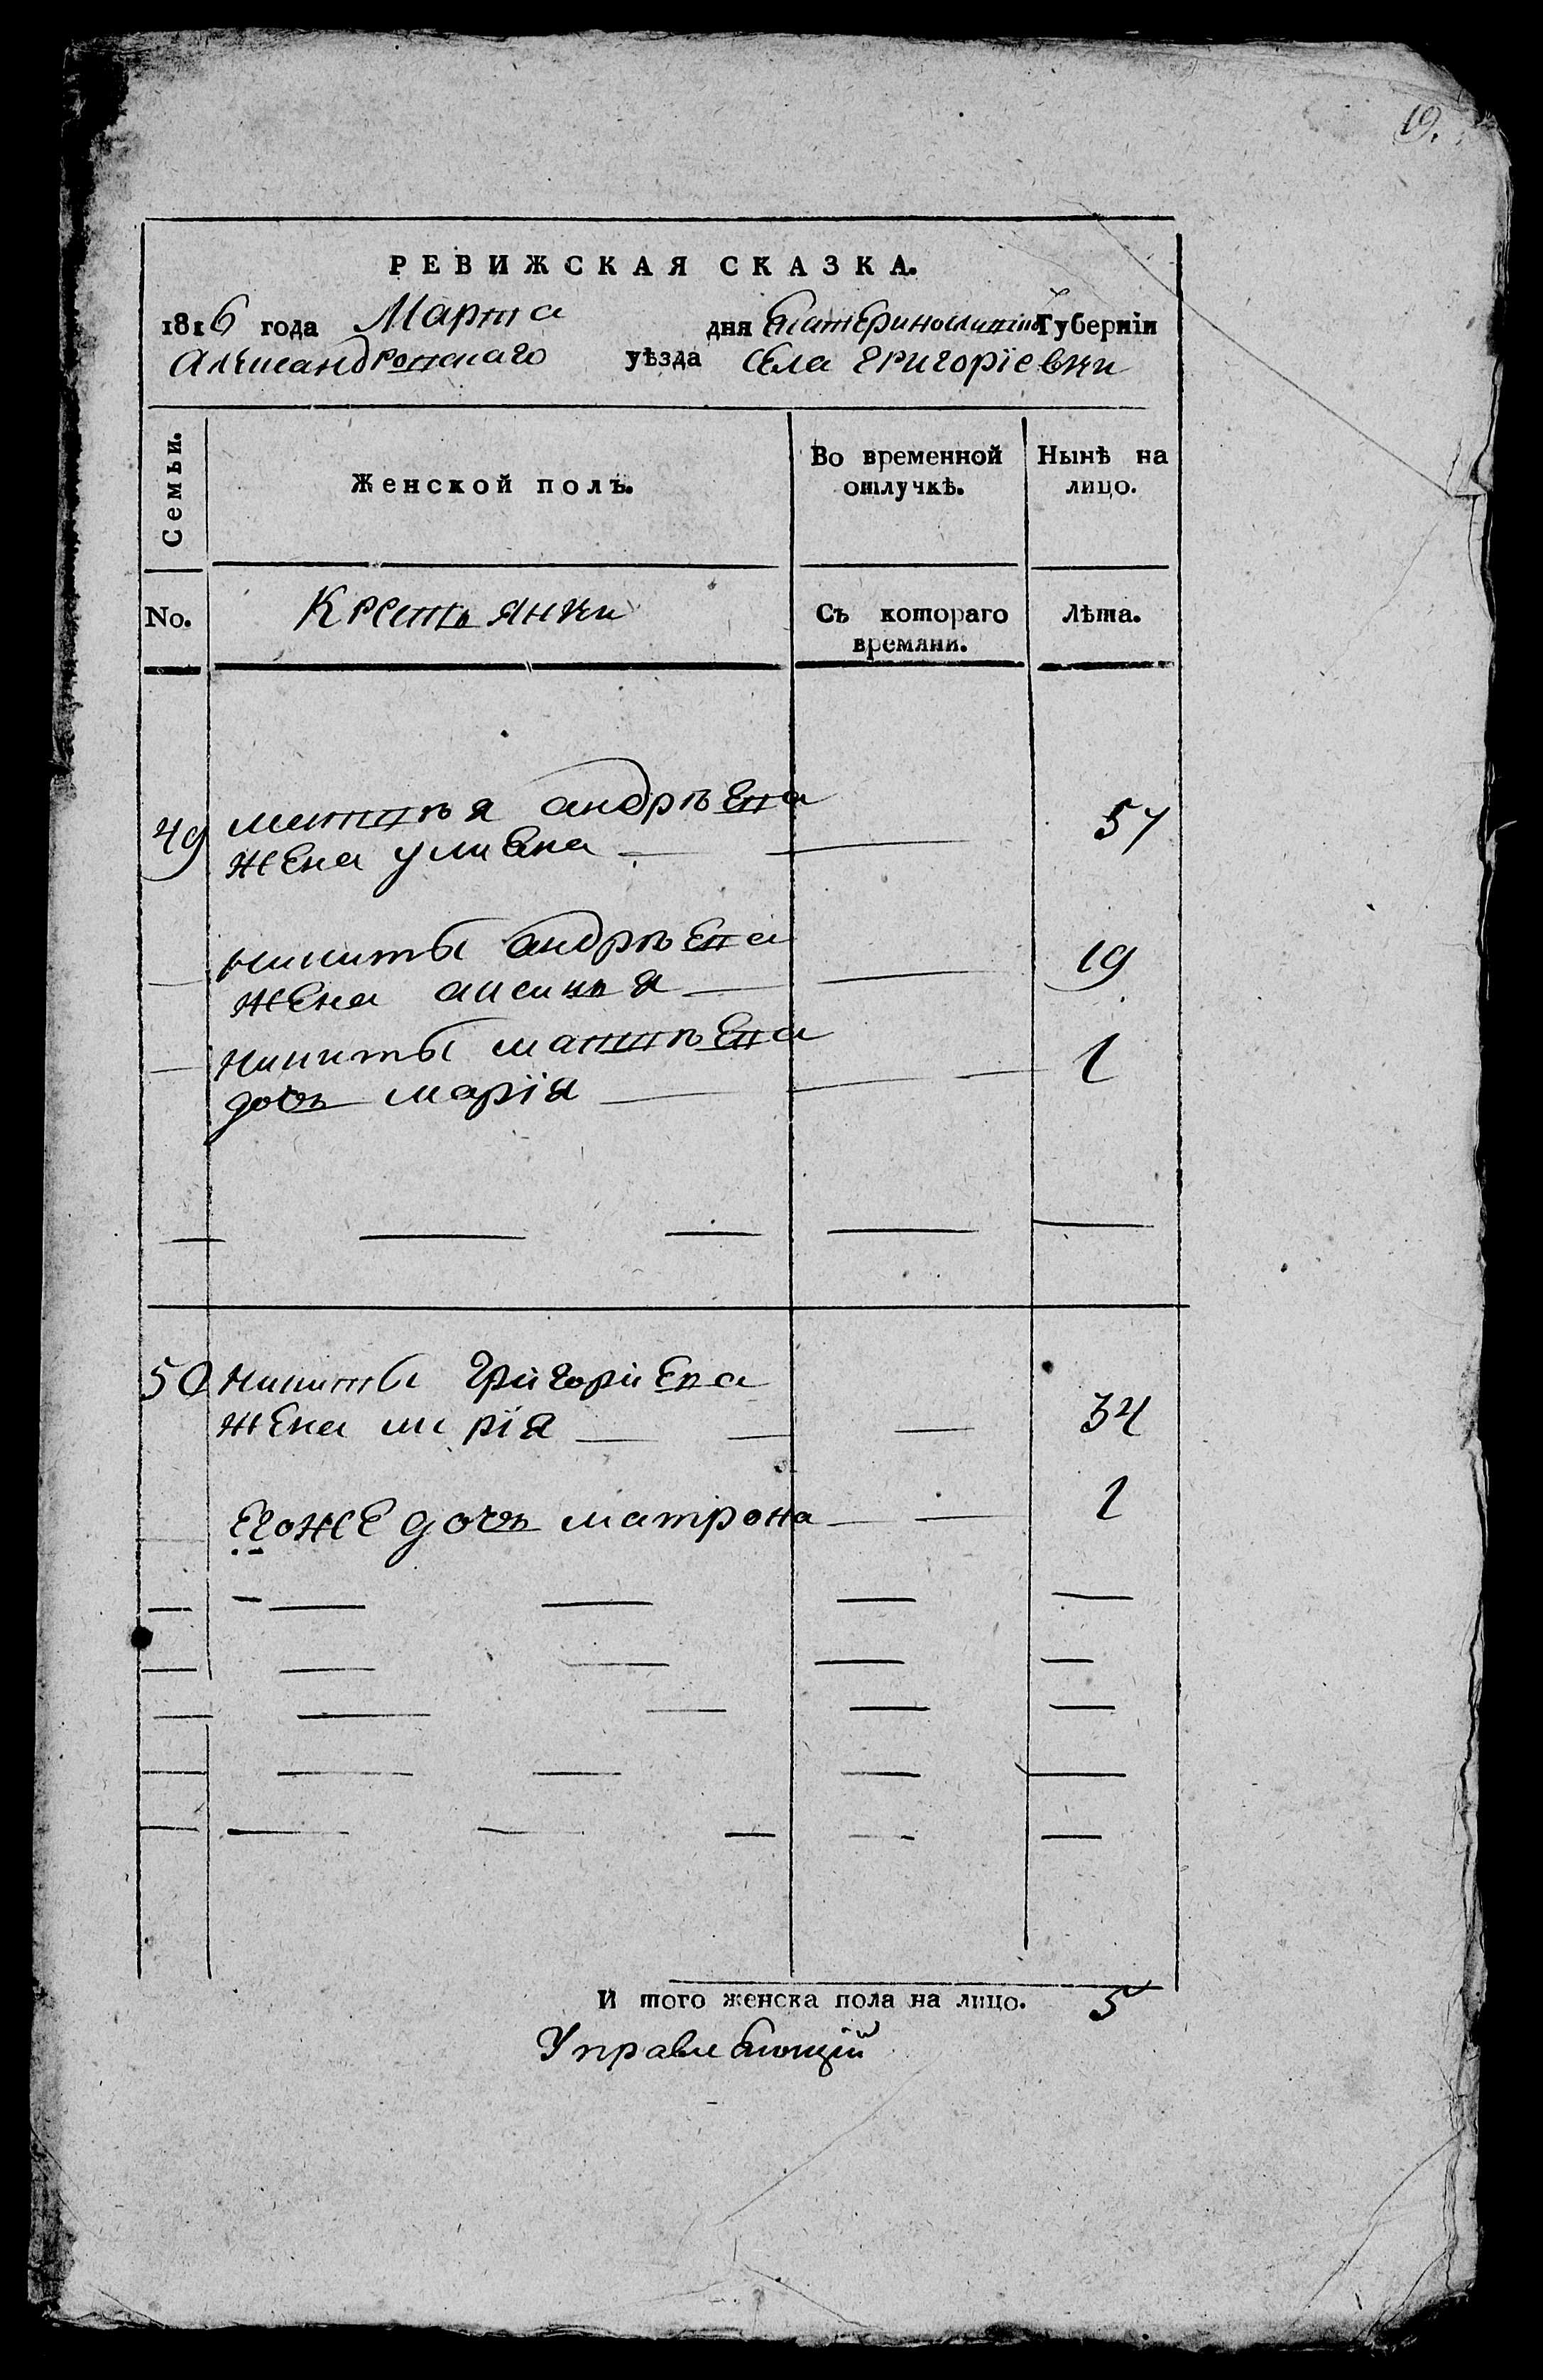 19.
РЕВИЖСКАЯ СКАЗКА.
1816 года Марта дня Екатеринославской Губерніи
Александровскаго уѣзда села Григоріевки
Семьи. Женской полъ. Во временной отлучкѣ. Нынѣ на лицо.
No. Крестьянки Съ котораго времяни. Лѣта.
49 матвѣя андрѣева
жена улиана 57
никиты андрѣева
жена аксинья 19
никиты матвѣева
дочь марія 1
50 никиты григориева
жена мирія 34
Егоже дочь матрона 1
И того женска пола на лицо. 5
Управляющій